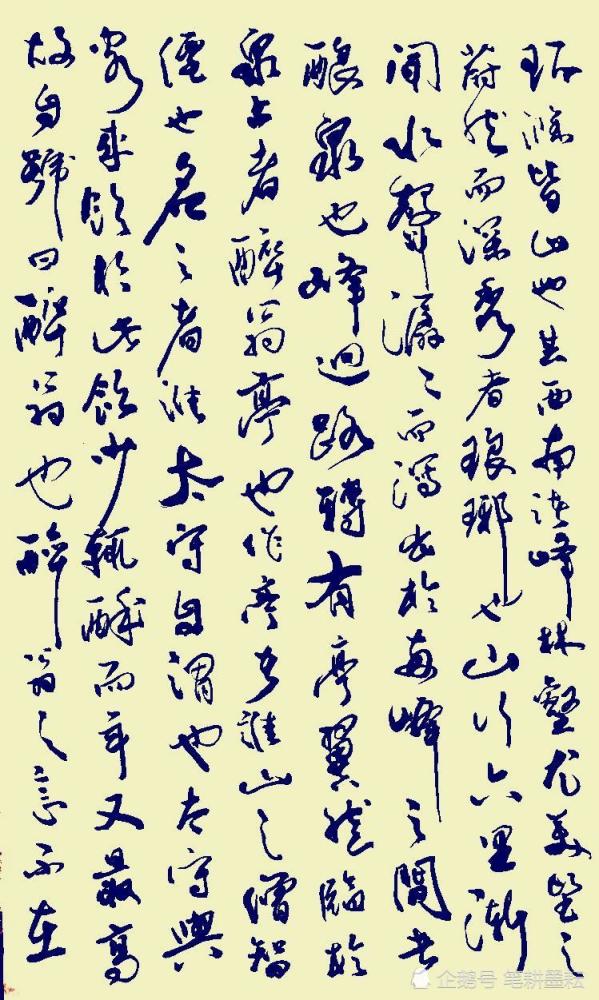 环滁皆山也其西南诸峰林壑尤美望之
蔚然而深秀者琅琊也山行六里渐
闻水聲潺〻而瀉出於兩峰之間者
釀泉也峰迴路轉有亭翼然臨於
泉上者醉翁亭也作亭者誰山之僧智
僊也名之者誰太守自謂也太守與
客來飲於此飲少輒醉而年又最高
故自號曰醉翁也醉翁之意不在
企鹅号 笔耕墨耘